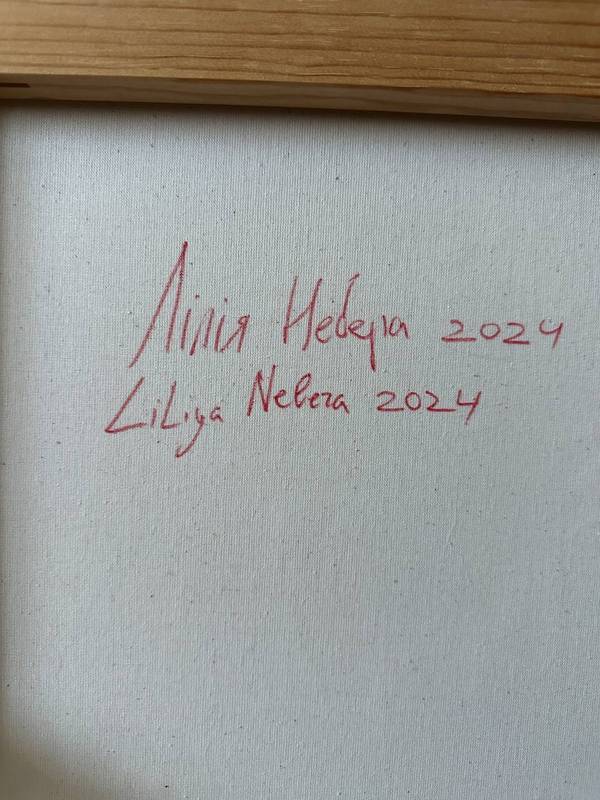 Лілія Небера 2024
Liliya Nebera 2024